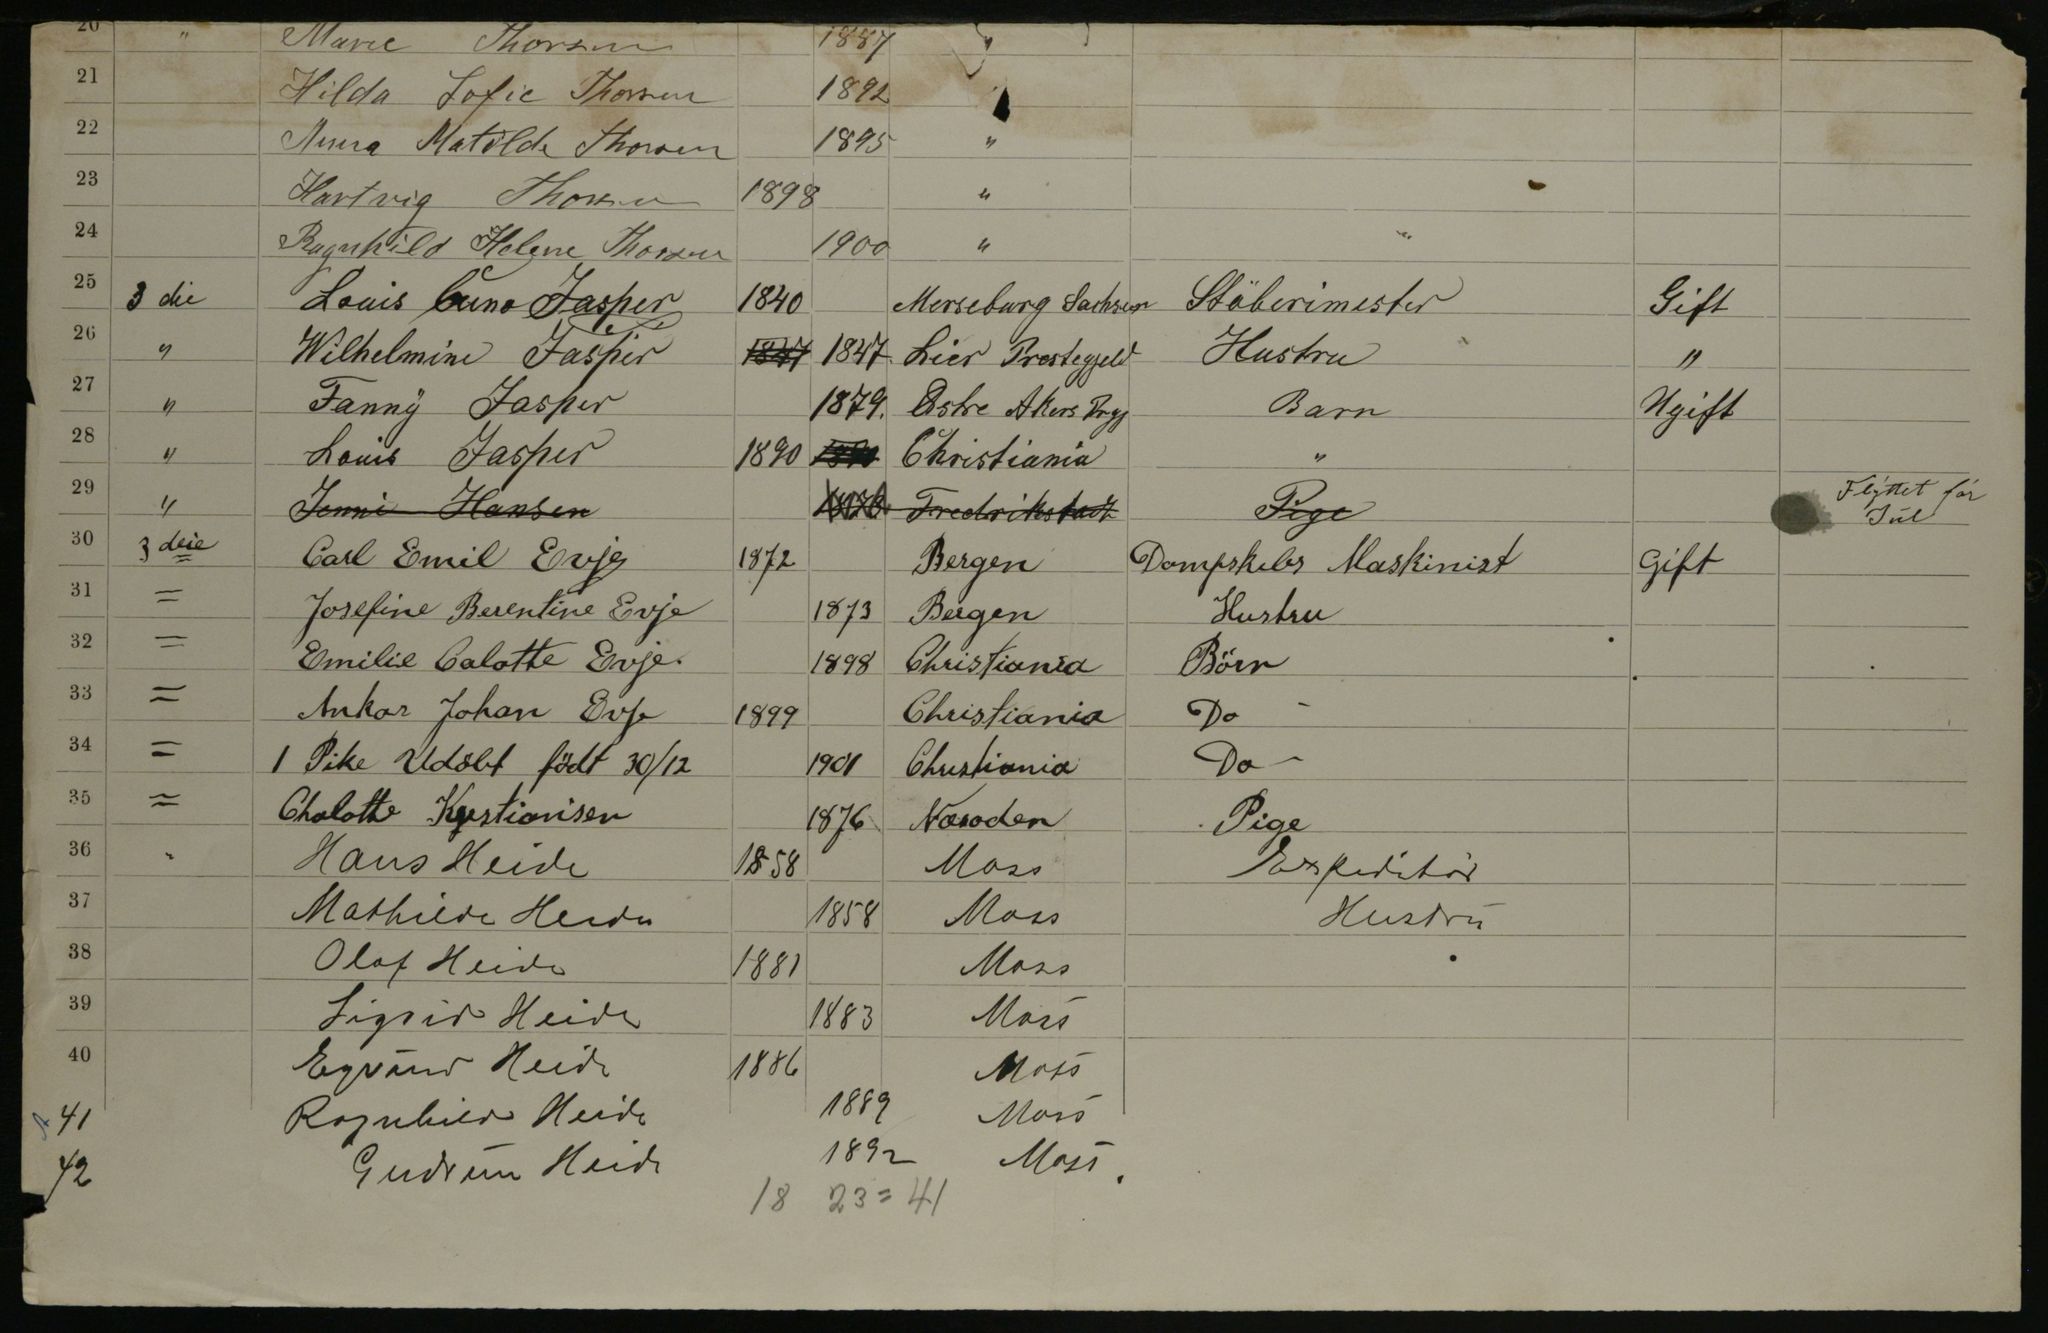 20 " Marie Thorsen 1887 "
21 Hilda Sofie Thorsen 1892 "
22 Anna Matilde Thorsen 1895 "
23 Hartvig Thorsen 1898 "
24 Ragnhild Helene Thorsen 1900 " "
25 3 die Louis Cuno Jasper 1840 Merseburg Sachsen Stöberimester Gift
26 " Wilhelmine Jasper 1847 1847 Lier Prestegjeld Hustru "
27 " Fanny Jasper 1879. Østre Akers Prgj Barn Ugift
28 " Louis Jasper 1890 1890 Christiania "
29 " Jenni Hansen 1878 Fredrikstadt Pige Flyttet før Jul
30 3 deie Carl Emil Evje 1872 Bergen Dampskibs Maskinist Gift
31 = Josefine Berentine Evje 1873 Bergen Hustru
32 = Emilie Calotte Evje. 1898 Christiania Börn
33 = Ankar Johan Evje 1899 Christiania Do -
34 = 1 Pike Udöbt födt 30/12 1901 Christiania Do -
35 = Chalotte Kristiansen 1876 Næsoden Pige
36 " Hans Heide 1858 Moss Expeditör
37 Mathilde Heide 1858 Moss Hustru
38 Olaf Heide 1881 Moss
39 Sigrid Heide 1883 Moss
40 Eyvind Heide 1886 Moss
41 Ragnhild Heide 1889 Moss
42 Gudrun Heide 1892 Moss.
18 23 = 41